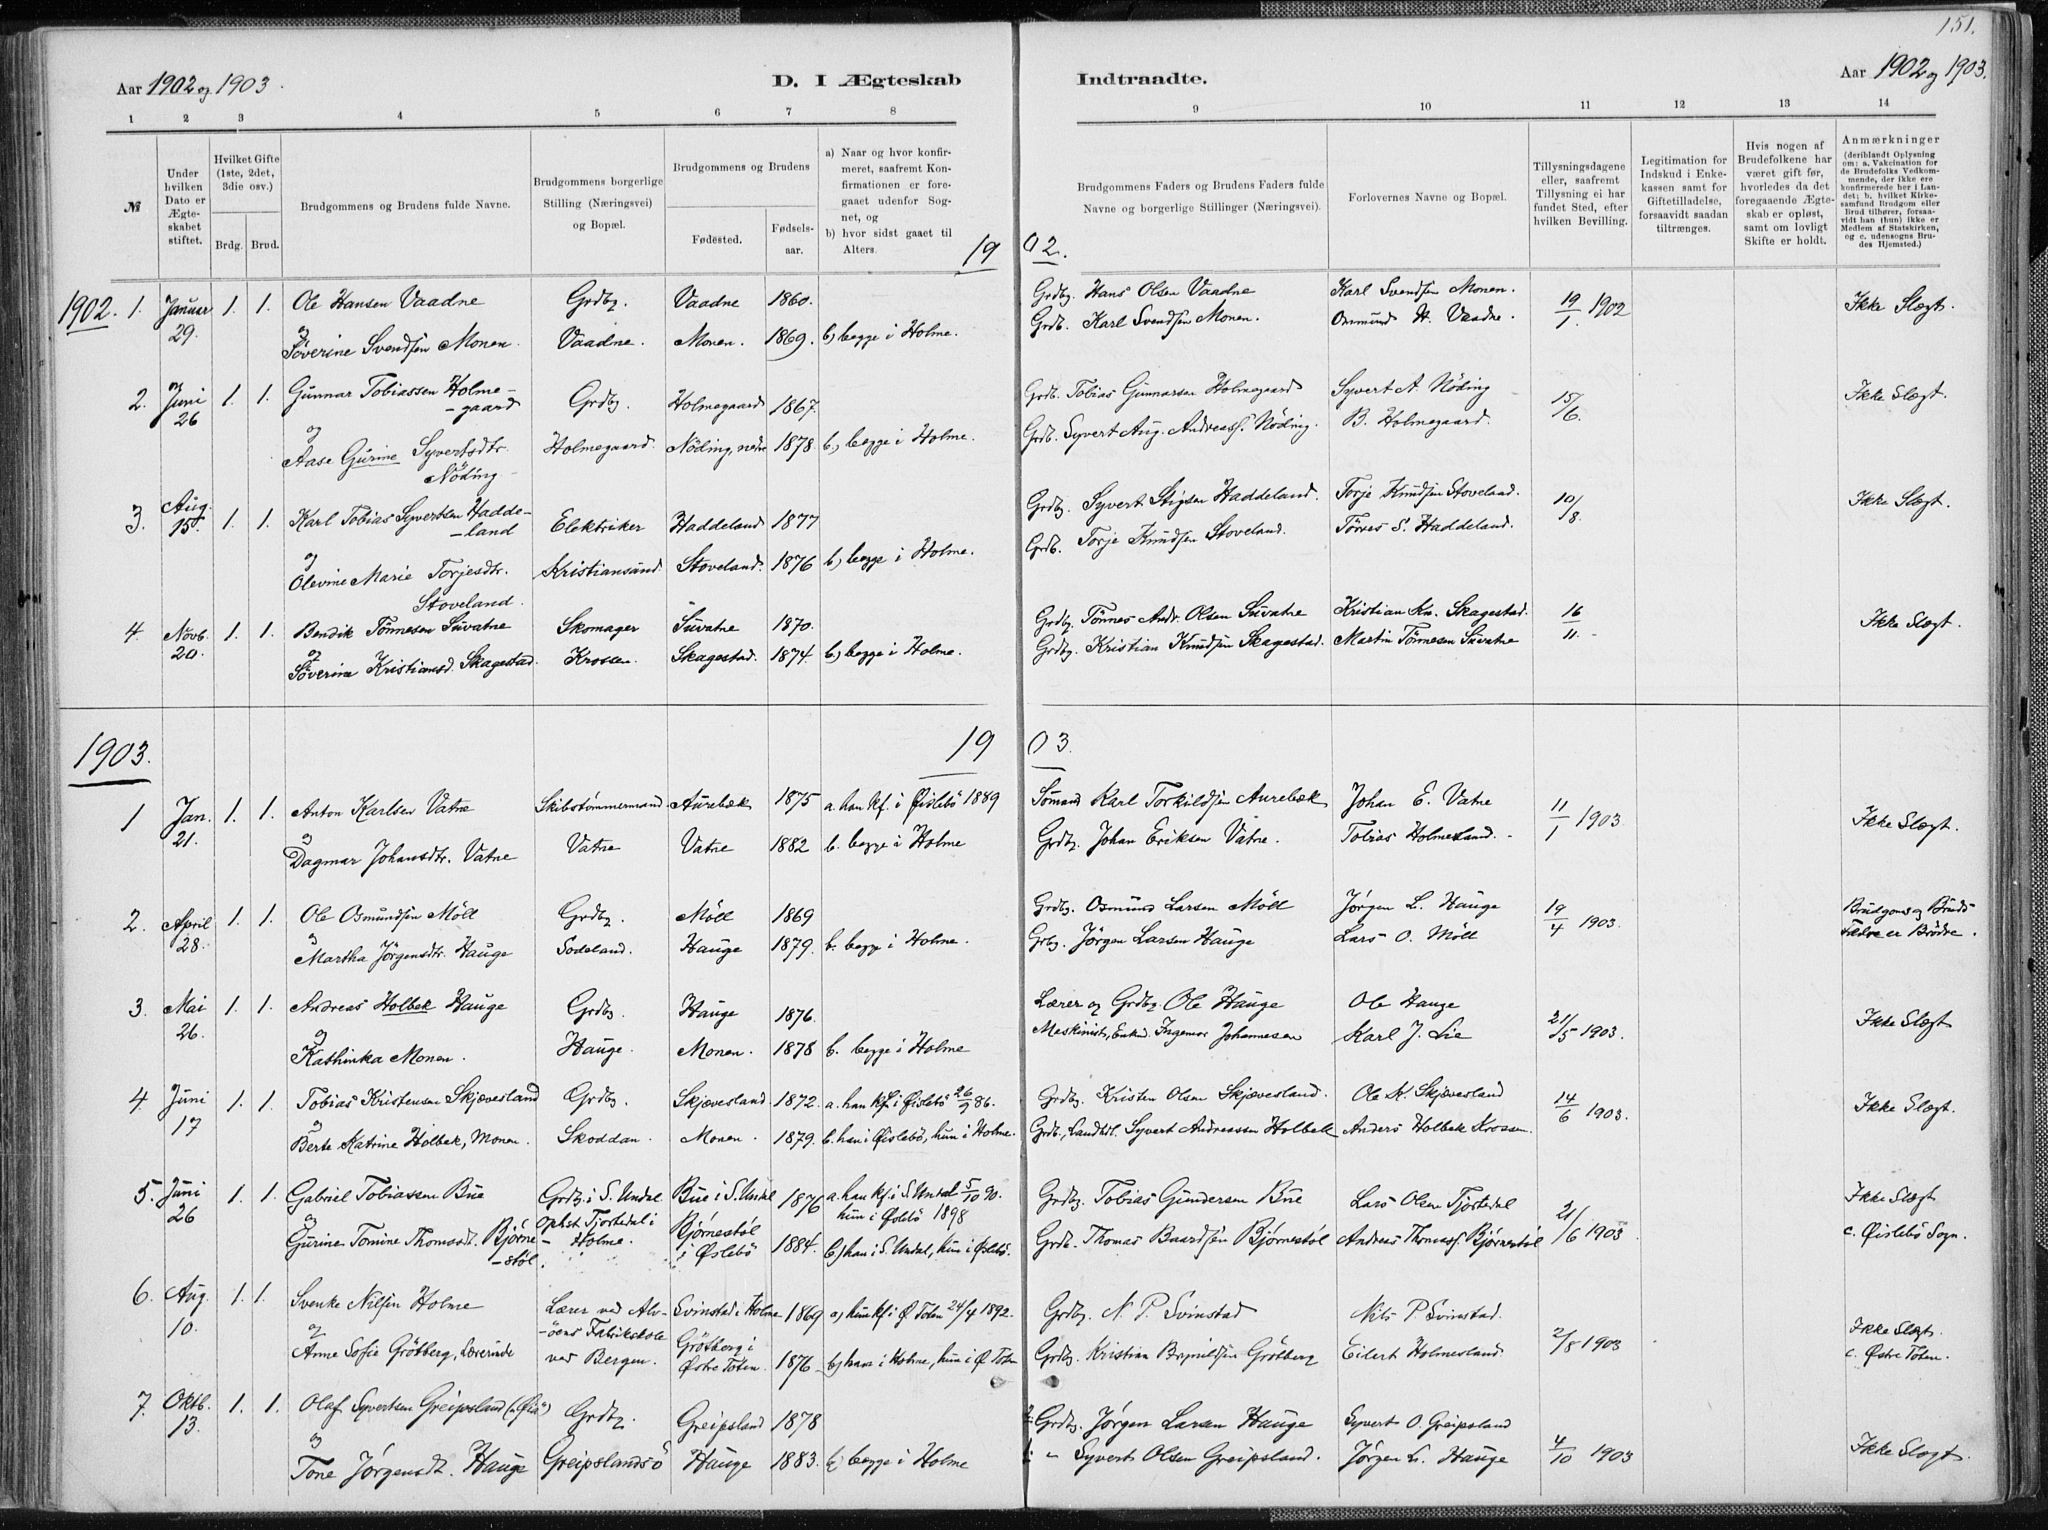 151.
Aar 1902 og 1903.
D. I Ægteskab
Indtraadte.
Aar 1902 og 1903.
1 2 3 4 5 6 7 8
9 10 11 12 13 14
№
Under hvilken Dato er Ægteskabet stiftet.
Hvilket Gifte (1ste, 2det, 3die osv.)
Brdg. Brud.
Brudgommens og Brudens fulde Navne.
Brudgommens borgerlige Stilling (Næringsvei) og Bopæl.
Brudgommens og Brudens
Fødested.
Fødselsaar.
a) Naar og hvor konfirmeret, saafremt Konfirmationen er foregaaet udenfor Sognet, og
b) hvor sidst gaaet til Alters.
Brudgommens Faders og Brudens Faders fulde Navne og borgerlige Stillinger (Næringsvei).
Forlovernes Navne og Bopæl.
Tillysningsdagene eller, saafremt Tillysning ei har fundet Sted, efter hvilken Bevilling.
Legitimation for Indskud i Enkekassen samt for Giftetilladelse, forsaavidt saadan tiltrænges.
Hvis nogen af Brudefolkene har været gift før, hvorledes da det foregaaende Ægteskab er opløst, samt om lovligt Skifte er holdt.
Anmærkninger
(deriblandt Oplysning om: a. Vakcination for de Brudefolks Vedkommende, der ikke ere konfirmerede her i Landet; b. hvilket Kirkesamfund Brudgom eller Brud tilhører, forsaavidt han (hun) ikke er Medlem af Statskirken, og c. udensogns Brudes Hjemsted.)
19 02.
1902. 1. Januar 29. 1. 1. Ole Hansen Vaadne Grdbr. Vaadne 1860. Grdbr. Hans Olsen Vaadne Karl Svendsen Monen. 19/1 1902 Ikke Slægt.
og Söverine Svendsen Monen. Vaadne. Monen. 1869. b) begge i Holme. Grdb. Karl Svendsen Monen. Ommund H. Vaadne.
2. Juni 26 1. 1. Gunnar Tobiassen Holme-gaard Grdbr. Holmegaard 1867. Grdb. Tobias Gunnarsen Holmegaard Syvert A Nöding 15/6. Ikke Slægt.
og Aase Gurine Syvertsdtr. Nöding Holmegaard. Nöding, nedre 1878 b,) begge i Holme. Grdb. Syvert Aug. Andreass. Nöding. B. Holmegaard.
3. Aug. 15. 1. 1. Karl Tobias Syvertsen Hadde-land Elektriker Haddeland 1877 Grdbr. Syvert Stigsen Haddeland. Torje Knudsen Stoveland. 10/8. Ikke Slægt.
og Olevine Marie Torjesdtr. Stoveland. Kristiansand. Stoveland. 1876 b) begge i Holme. Grdb. Torje Knudsen Stoveland. Törres S. Haddeland.
4. Novb. 20. 1. 1. Bendik Tönnesen Suvatne Skomager Suvatne 1870. Grdbr. Tönnes Andr. Olsen Suvatne Kristian Kn. Skagestad. 16/11. Ikke Slægt.
og Söverine Kristiansd. Skagestad. Krossen. Skagestad. 1874. b) begge i Holme. Grdbr. Kristian Knudsen Skagestad. Martin Tönnesen Suvatne
1903. 19 03.
1 Jan. 21. 1. 1. Anton Karlsen Vatne Skibstömmermand Aurebæk 1875 a. han kf. i Øislebö 1889 Sömand Karl Torkildsen Aurebæk Johan E. Vatne 11/1 1903 Ikke Slægt.
og Dagmar Johansdtr. Vatne Vatne Vatne 1882 b. begge i Holme Grdbr. Johan Eriksen Vatne. Tobias Holmesland.
2. April 28. 1. 1. Ole Osmundsen Möll Grdbr. Möll 1869 Grdbr. Osmund Larsen Möll Jørgen L. Hauge 19/4 1903. Brudgoms og Bruds Fædre er Brödre.
og Martha Jörgensdtr. Hauge Sodeland. Hauge 1879. b. begge i Holme. Grbr. Jörgen Larsen Hauge Lars O. Möll
3. Mai 26. 1. 1. Andreas Holbek Hauge Grdbr. Hauge 1876. Lærer og Grdbr. Ole Hauge Ole Hauge 21/5 1903. Ikke Slægt
og Kathinka Monen. Hauge. Monen. 1878 b. begge i Holme Maskinist, Ingemar Johannesen Karl J. Lie
4. Juni 17 1. 1. Tobias Kristensen Skjævesland Grdbr. Skjævesland 1872. a. han kf. i Øislebö 26/9 86. Grdbr. Kristen Olsen Skjævesland. Ole K. Skjævesland 14/6 1903. Ikke Slægt.
og Berte Katrine Holbek, Monen. Skoddan. Monen. 1879. b. han i Øislebö, hun i Holme. Grdb., Landhdl. Syvert Andreassen Holbek Anders Holbek Krossen.
5. Juni 26 1. 1. Gabriel Tobiassen Bue Grdbr. i S. Undal Bue i S. Undal 1876 a. han kf. i S. Undal 5/10 90. hun i Øslebö 1898 Grdbr. Tobias Gundersen Bue Lars Olsen Tjostedal 21/6 1903 Ikke Slægt
og Gurine Tomine Thomasdt. Björne-stöl. Ophst Tjostedal i Holme. Bjørnestøl i Øslebö 1884. b) han i S. Undal, hun i Øslebö. Grdb. Thomas Baardsen Bjørnestøl Andreas Thomass. Bjørnestøl c. Øislebö Sogn.
6. Aug. 10. 1. 1. Svenke Nilsen Holme Lærer ved Alv-öens Fabrikskole Svinstad i Holme 1869 a) hun kf. i Ø. Toten 24/4 1892. Grdbr. N. P. Svinstad Nils P. Svinstad. 2/8 1903 Ikke Slægt.
og Anne Sofie Grötberg, Lærerinde ved Bergen. Grötberg i Östre Toten. 1876. b) han i Holme, hun i Ø Toten Grdbr. Kristian Grötberg Eilert Holmesland c. Østre Toten.
7. Oktb. 13. 1. 1. Olaf Syvertsen Greipsland Grdbr. Greipsland 1878 2. Grdbr. Jørgen Larsen Hauge Syvert O. Greipsland 4/10 1903 Ikke Slægt.
og Tone Jørgensdt. Hauge Greipslandsö Hauge 1883. b) begge i Holme 1. " Syvert Olsen Greipsland. Jørgen L. Hauge